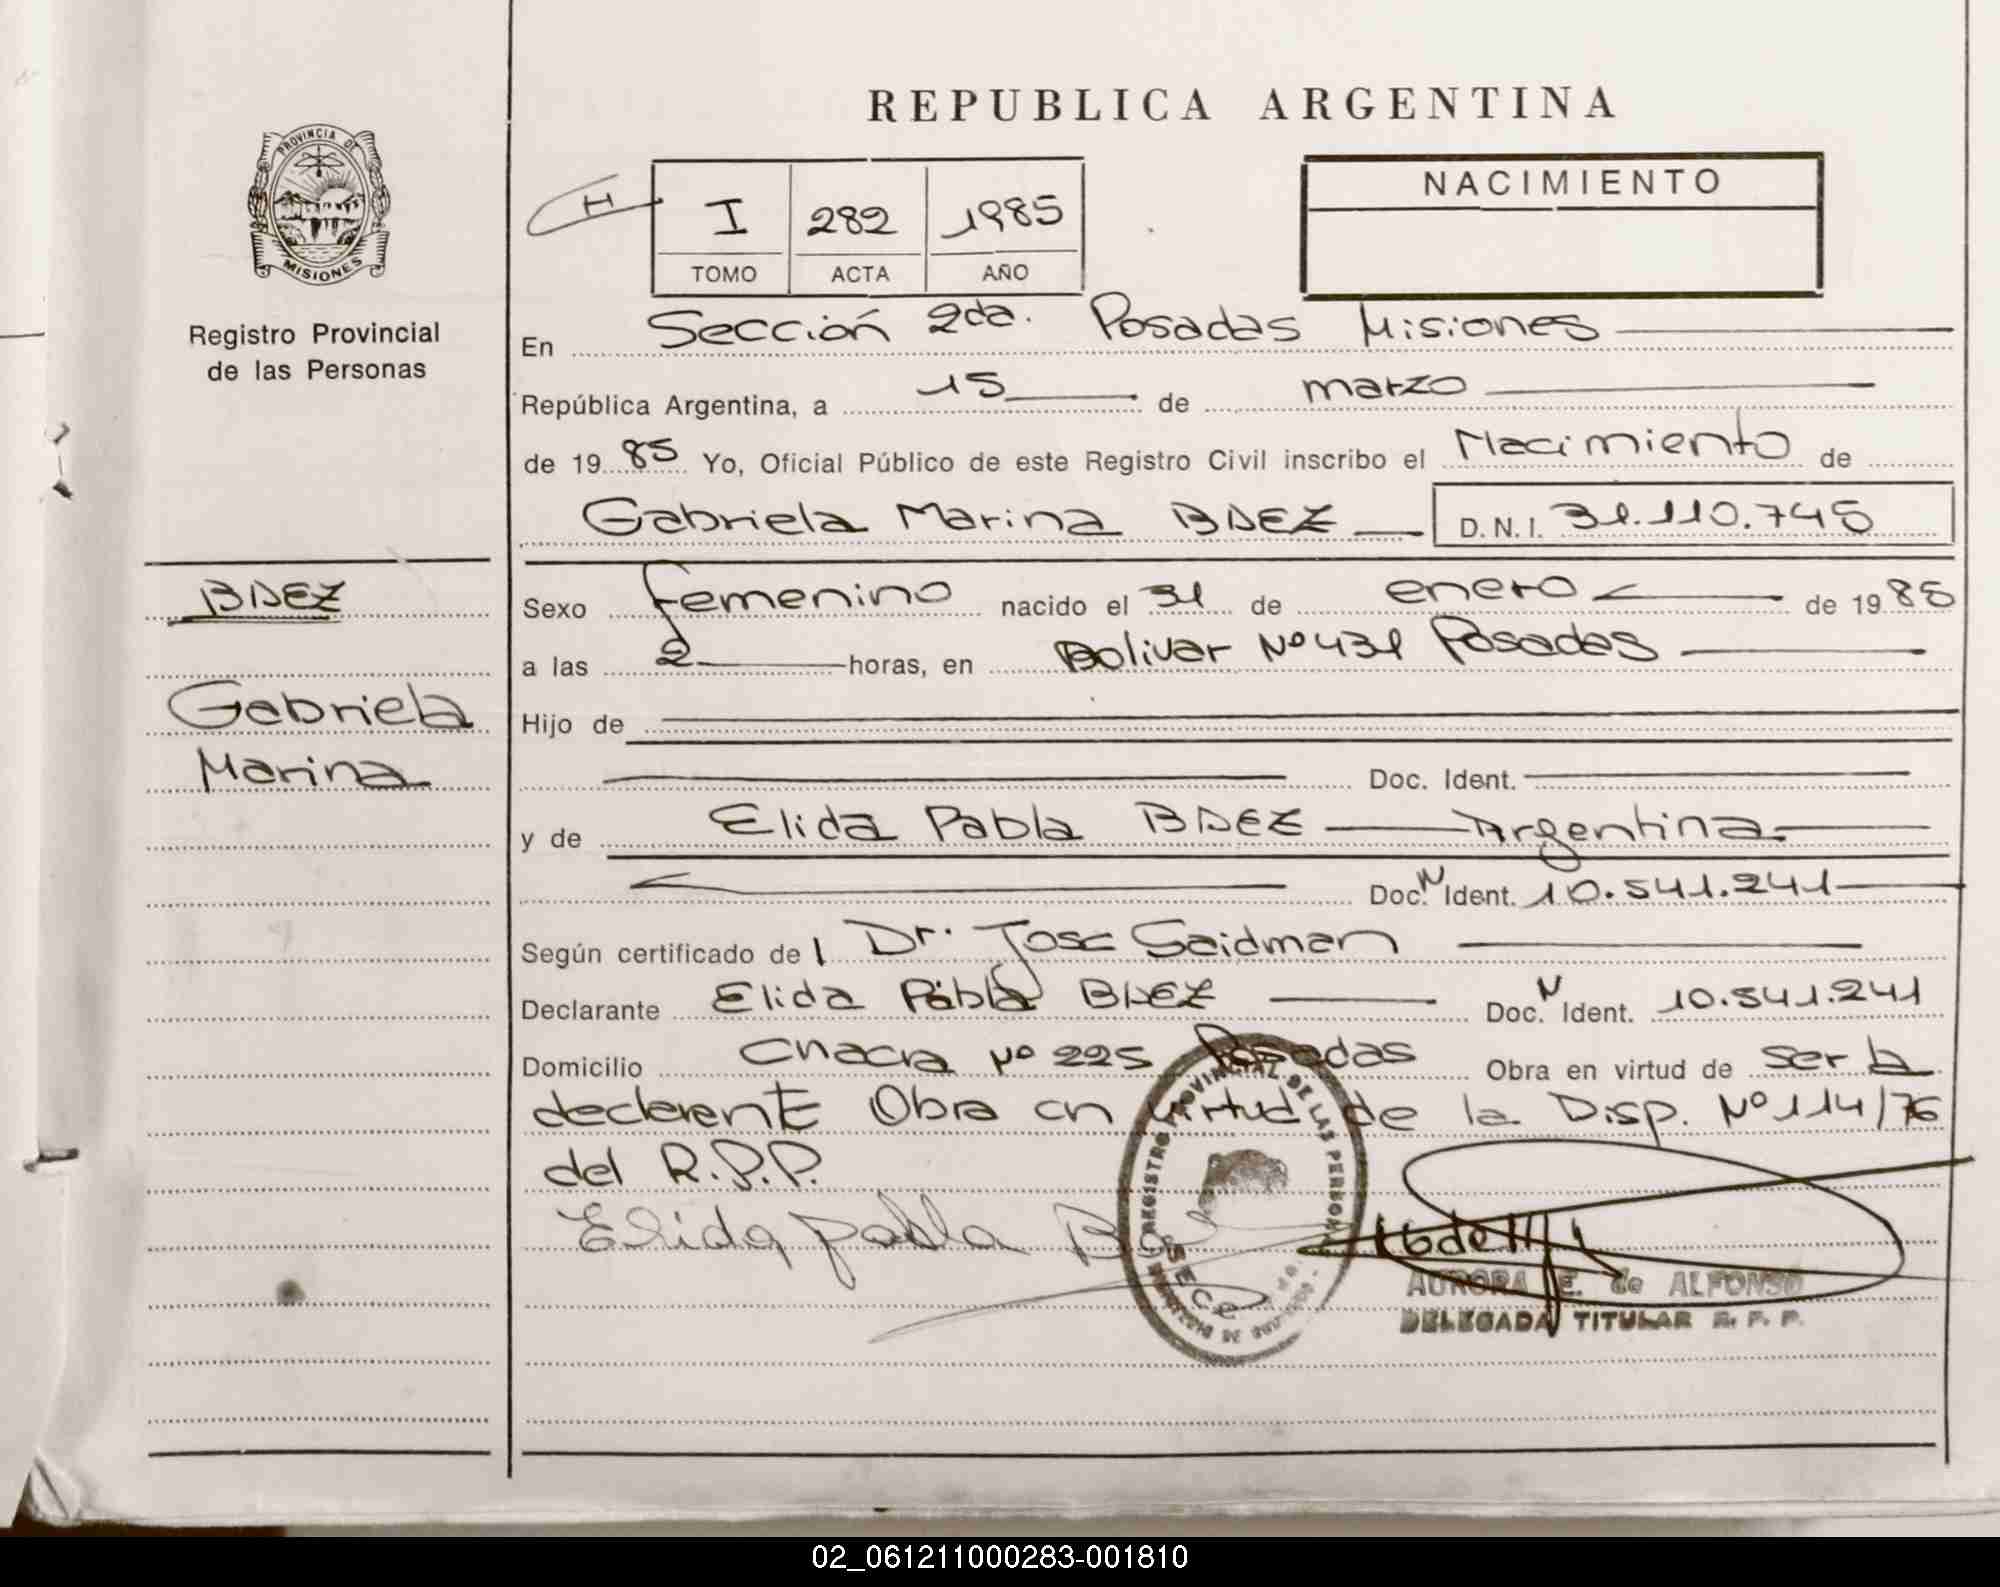 REPUBLICA ARGENTINA
PROVINCIA DE
MISIONES
Registro Provincial
de las Personas
H
I 282 1985
TOMO ACTA AÑO
NACIMIENTO
En Sección 2da. Posadas Misiones
República Argentina, a 15 de marzo
de 1985 Yo, Oficial Público de este Registro Civil inscribo el Nacimiento de
Gabriela Marina BAEZ D.N.I. 31.110.745
BAEZ
Gabriela
Marina
Sexo femenino nacido el 31 de enero de 1985
a las 2 horas, en Bolivar Nº 431 Posadas
Hijo de
Doc. Ident.
y de Elida Pabla BAEZ Argentina
Doc. N Ident. 10.541.241
Según certificado de l Dr. Jose Seidman
Declarante Elida Pabla BAEZ Doc. N Ident. 10.541.241
Domicilio Chacra Nº 225 Posadas Obra en virtud de ser la
declarente Obra en virtud de la Disp. Nº 114/76
del R.P.P.
Elida pabla
REGISTRO PROVINCIAL DE LAS PERSONAS
AURORA E. de ALFONSO
DELEGADA TITULAR R. P. P.
02_061211000283-001810